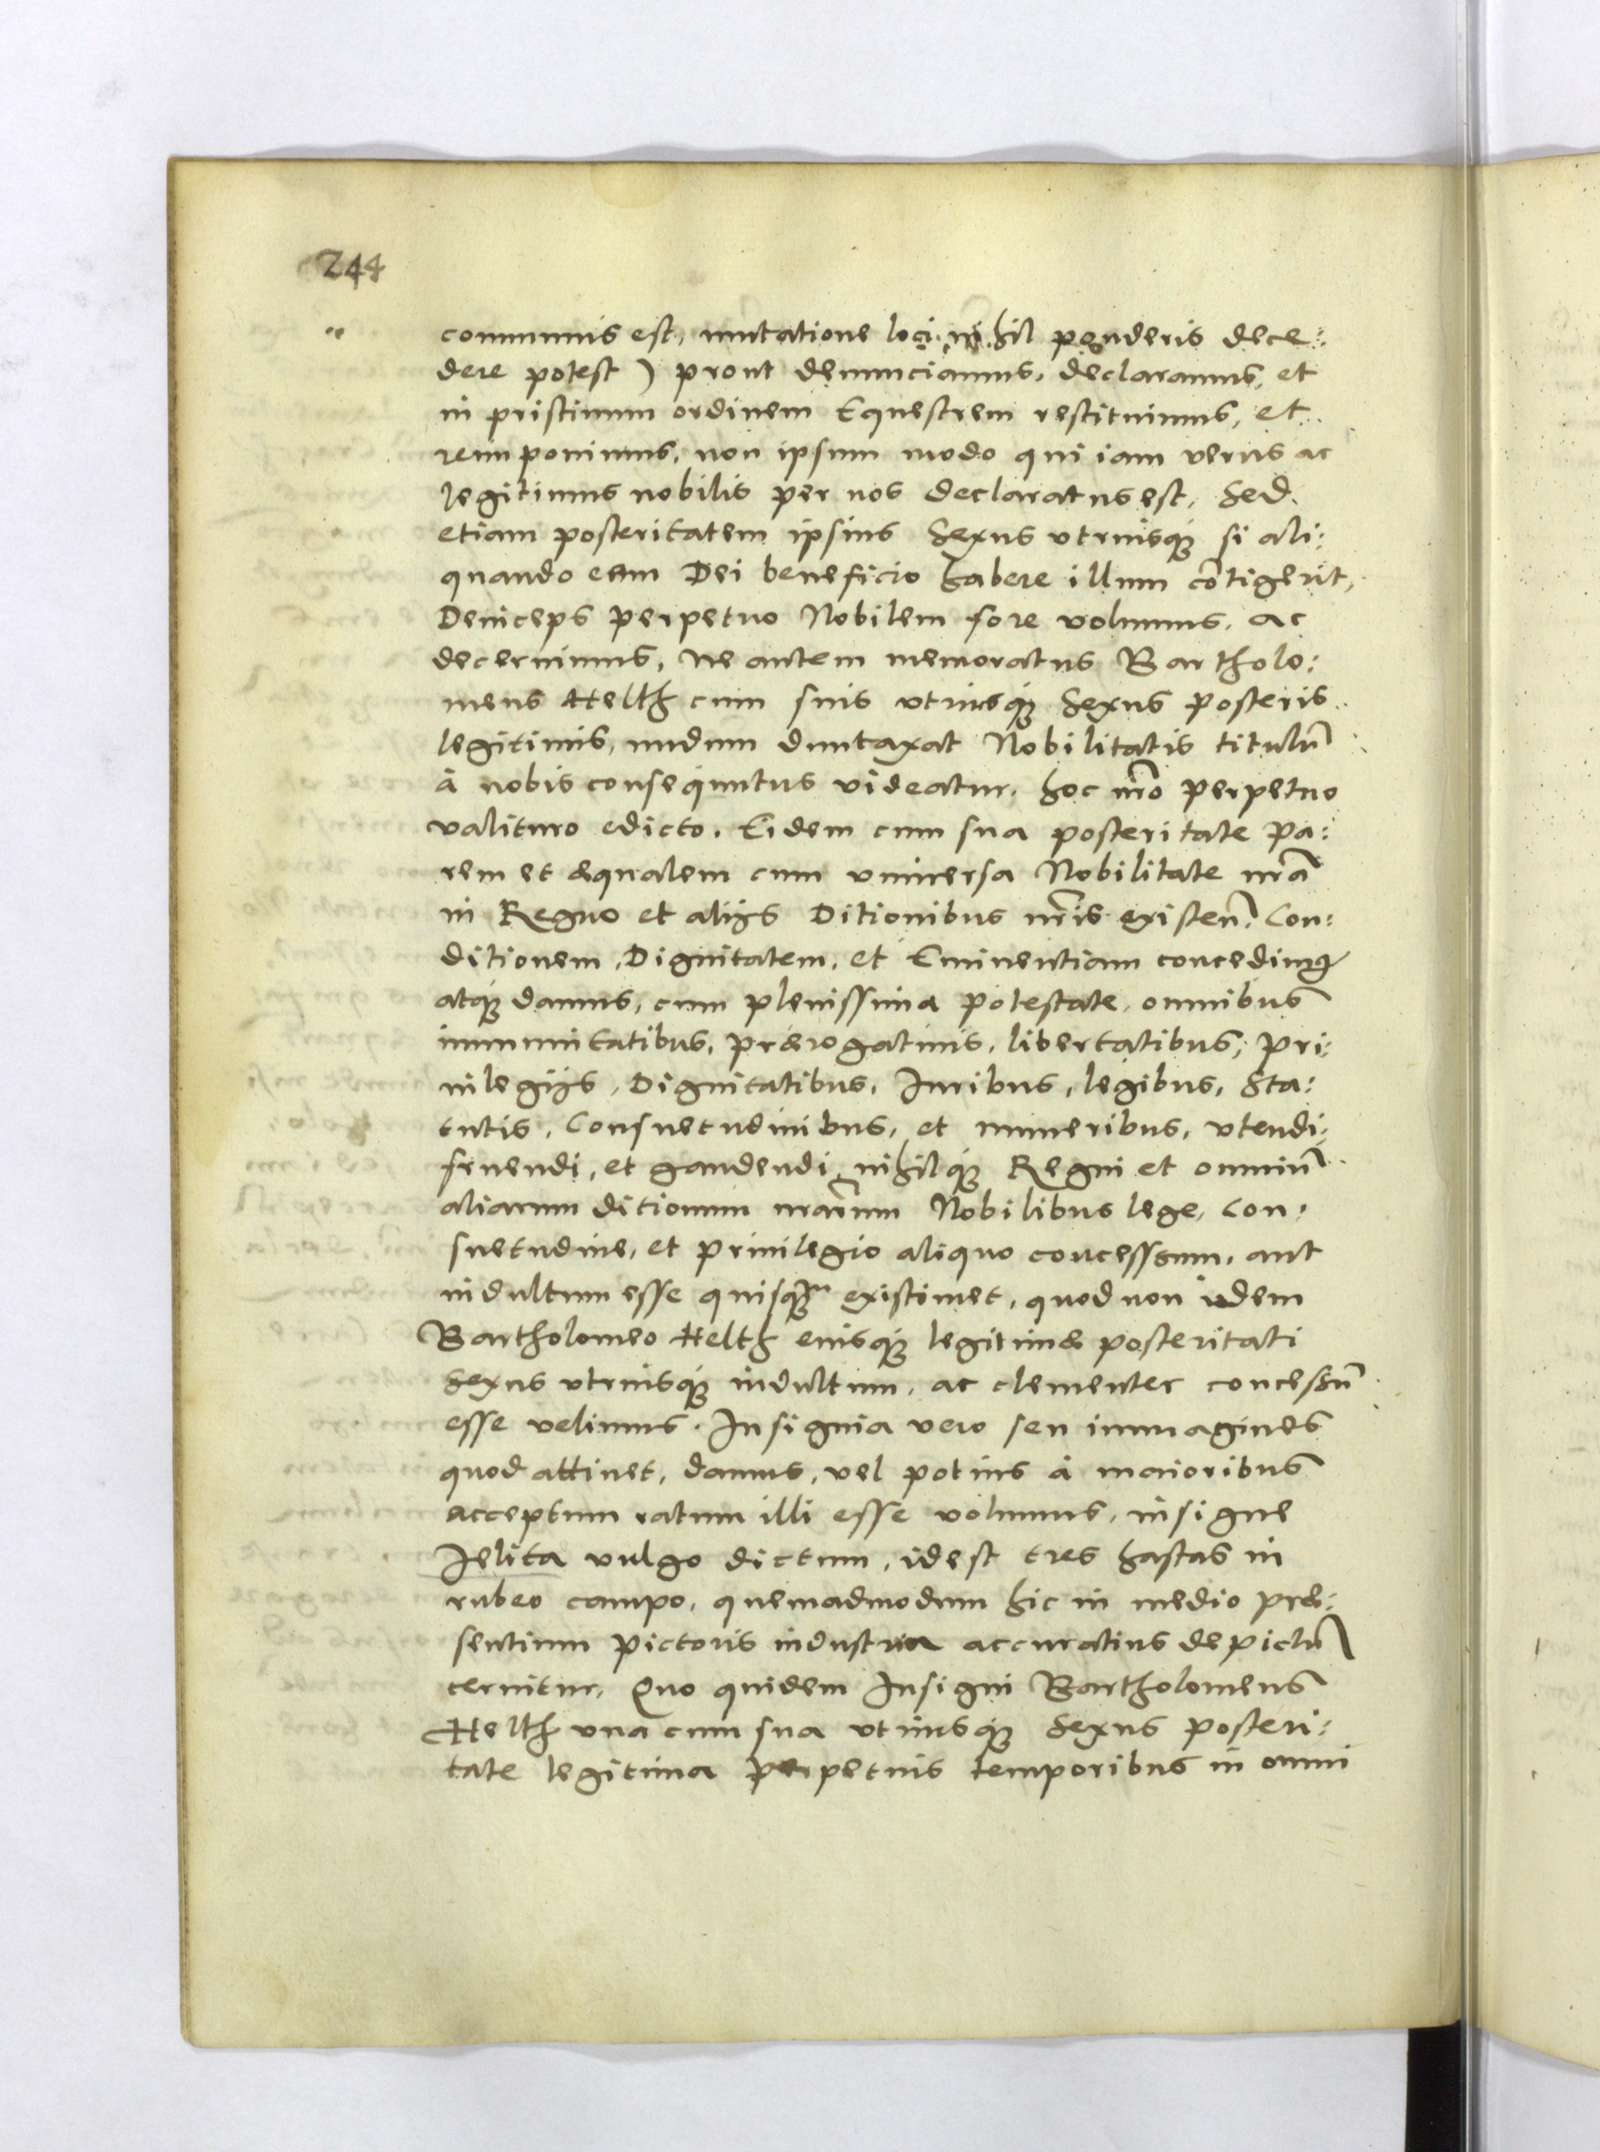 244
communis est, mutatione loci nihil ponderis dece:
dere potest) prout denunciamus, declaramus, et
in pristinum ordinem Equestrem restituimus, et
reimponimus, non ipsum modo qui iam verus ac
legitimus nobilis per nos declaratus est, Sed
etiam posteritatem ipsius Sexus utriusq́ue si ali:
quando eam Dei beneficio habere illum cōtigerit,
Deinceps perpetuo Nobilem fore volumus, ac
decernimus, Ne autem memoratus Bartholo:
meus Helth cum suis utriusq́ue Sexus posteris
legitimis, nudum duntaxat Nobilitatis titulū
à nobis consequutus videatur, hoc nr̃o perpetuo
valituro edicto, Eidem cum sua posteritate pa:
rem et æqualem cum universa Nobilitate nrã
in Regno et alijs Ditionibus nr̃is existen̄. Con:
ditionem, Dignitatem, et Eminentiam concedimus
atq́ue damus, cum plenissima potestate, omnibus
immunitatibus, prærogativis, libertatibus, Pri:
vilegijs, Dignitatibus, Iuribus, legibus, Sta:
tutis, Consuetudinibus, et muneribus, utendi,
fruendi, et gaudendi, nihilq́ue Regni et omniū
aliarum ditionum nrãrum Nobilibus lege, Con:
suetudine, et privilegio aliquo concessum, aut
indultum esse quisq̃uam existimet, quod non idem
Bartholomeo Helth eiusq́ue legitimæ posteritati
Sexus utriusq́ue indultum, ac clementer concessū
esse velimus. Insignia vero seu immagines
quod attinet, damus, vel potius à maioribus
acceptum ratum illi esse volumus, insigne
Jelita vulgo dictum, idest tres hastas in
rubeo campo, quemadmodum hic in medio præ:
sentium pictoris industria accuratius depictū
cernitur, Quo quidem Insigni Bartholomeus
Helth una cum sua utriusq́ue Sexus posteri:
tate legitima perpetuis temporibus in omni